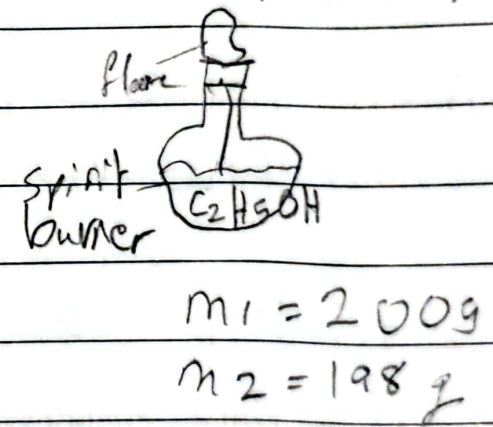 flame
spirit
burner
C2H5OH
m1 = 200g
m2 = 198 g